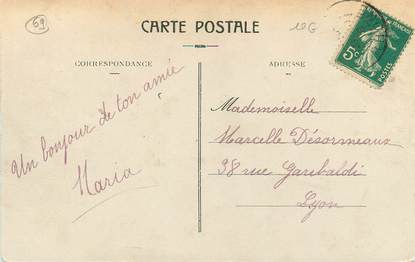 69
CARTE POSTALE
10G
CORRESPONDANCE
ADRESSE
5c
POSTES
Un bonjour de ton amie
Maria
Mademoiselle
Marcelle Désormeaux
98 rue Garibaldi
Lyon